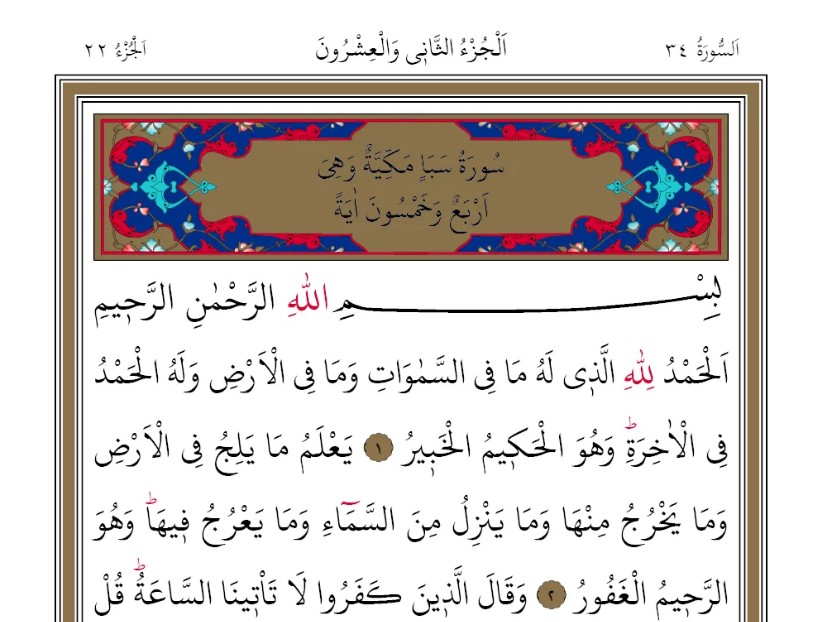 اَلسُّورَةُ ٣٤ اَلْجُزْءُ الثَّانٖى وَالْعِشْرُونَ اَلْجُزْءُ ٢٢
سُورَةُ سَبَاٍ مَكِّيَّةٌ وَهِىَ
اَرْبَعٌ وَخَمْسُونَ اٰيَةً
بِسْمِ اللّٰهِ الرَّحْمٰنِ الرَّحٖيمِ
اَلْحَمْدُ لِلّٰهِ الَّذٖى لَهُ مَا فِى السَّمٰوَاتِ وَمَا فِى الْاَرْضِ وَلَهُ الْحَمْدُ
فِى الْاٰخِرَةِؕ وَهُوَ الْحَكٖيمُ الْخَبٖيرُ ١ يَعْلَمُ مَا يَلِجُ فِى الْاَرْضِ
وَمَا يَخْرُجُ مِنْهَا وَمَا يَنْزِلُ مِنَ السَّمَٓاءِ وَمَا يَعْرُجُ فٖيهَاؕ وَهُوَ
الرَّحٖيمُ الْغَفُورُ ٢ وَقَالَ الَّذٖينَ كَفَرُوا لَا تَاْتٖينَا السَّاعَةُؕ قُلْ